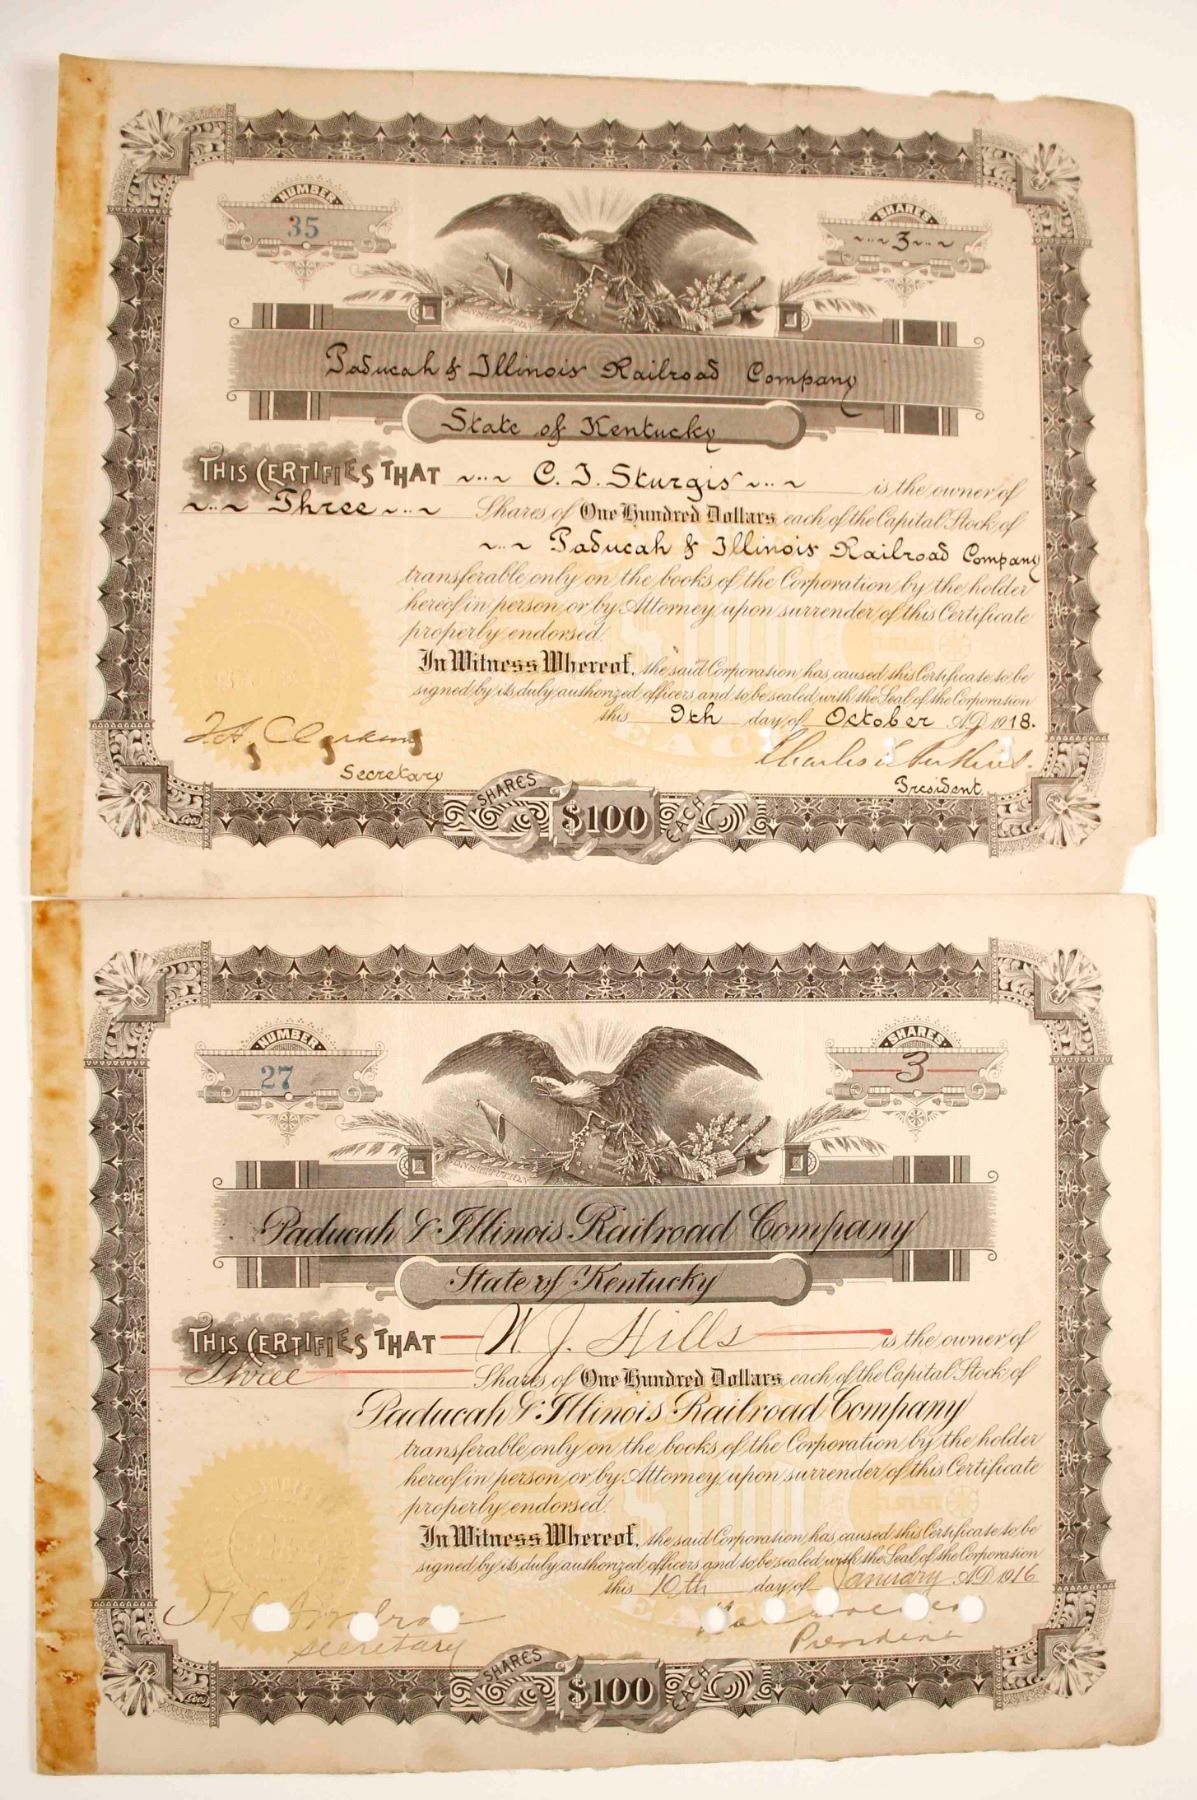 NUMBER
35
SHARES
3
CONSTITUTION
Paducah & Illinois Railroad Company
State of Kentucky
THIS CERTIFIES THAT C. I. Sturgis is the owner of
Three Shares of One Hundred Dollars each of the Capital Stock of
Paducah & Illinois Railroad Company
transferable only on the books of the Corporation by the holder
hereof in person or by Attorney upon surrender of this Certificate
properly endorsed.
In Witness Whereof, the said Corporation has caused this Certificate to be
signed by its duly authorized officers and to be sealed with the Seal of the Corporation
this 9th day of October A.D. 1918.
Secretary
President
SHARES $100 EACH
NUMBER
27
SHARES
3
CONSTITUTION
Paducah & Illinois Railroad Company
State of Kentucky
THIS CERTIFIES THAT W. J. Hills is the owner of
Three Shares of One Hundred Dollars each of the Capital Stock of
Paducah & Illinois Railroad Company
transferable only on the books of the Corporation by the holder
hereof in person or by Attorney upon surrender of this Certificate
properly endorsed.
In Witness Whereof, the said Corporation has caused this Certificate to be
signed by its duly authorized officers and to be sealed with the Seal of the Corporation
this 10th day of January A.D. 1916
Secretary
President
SHARES $100 EACH